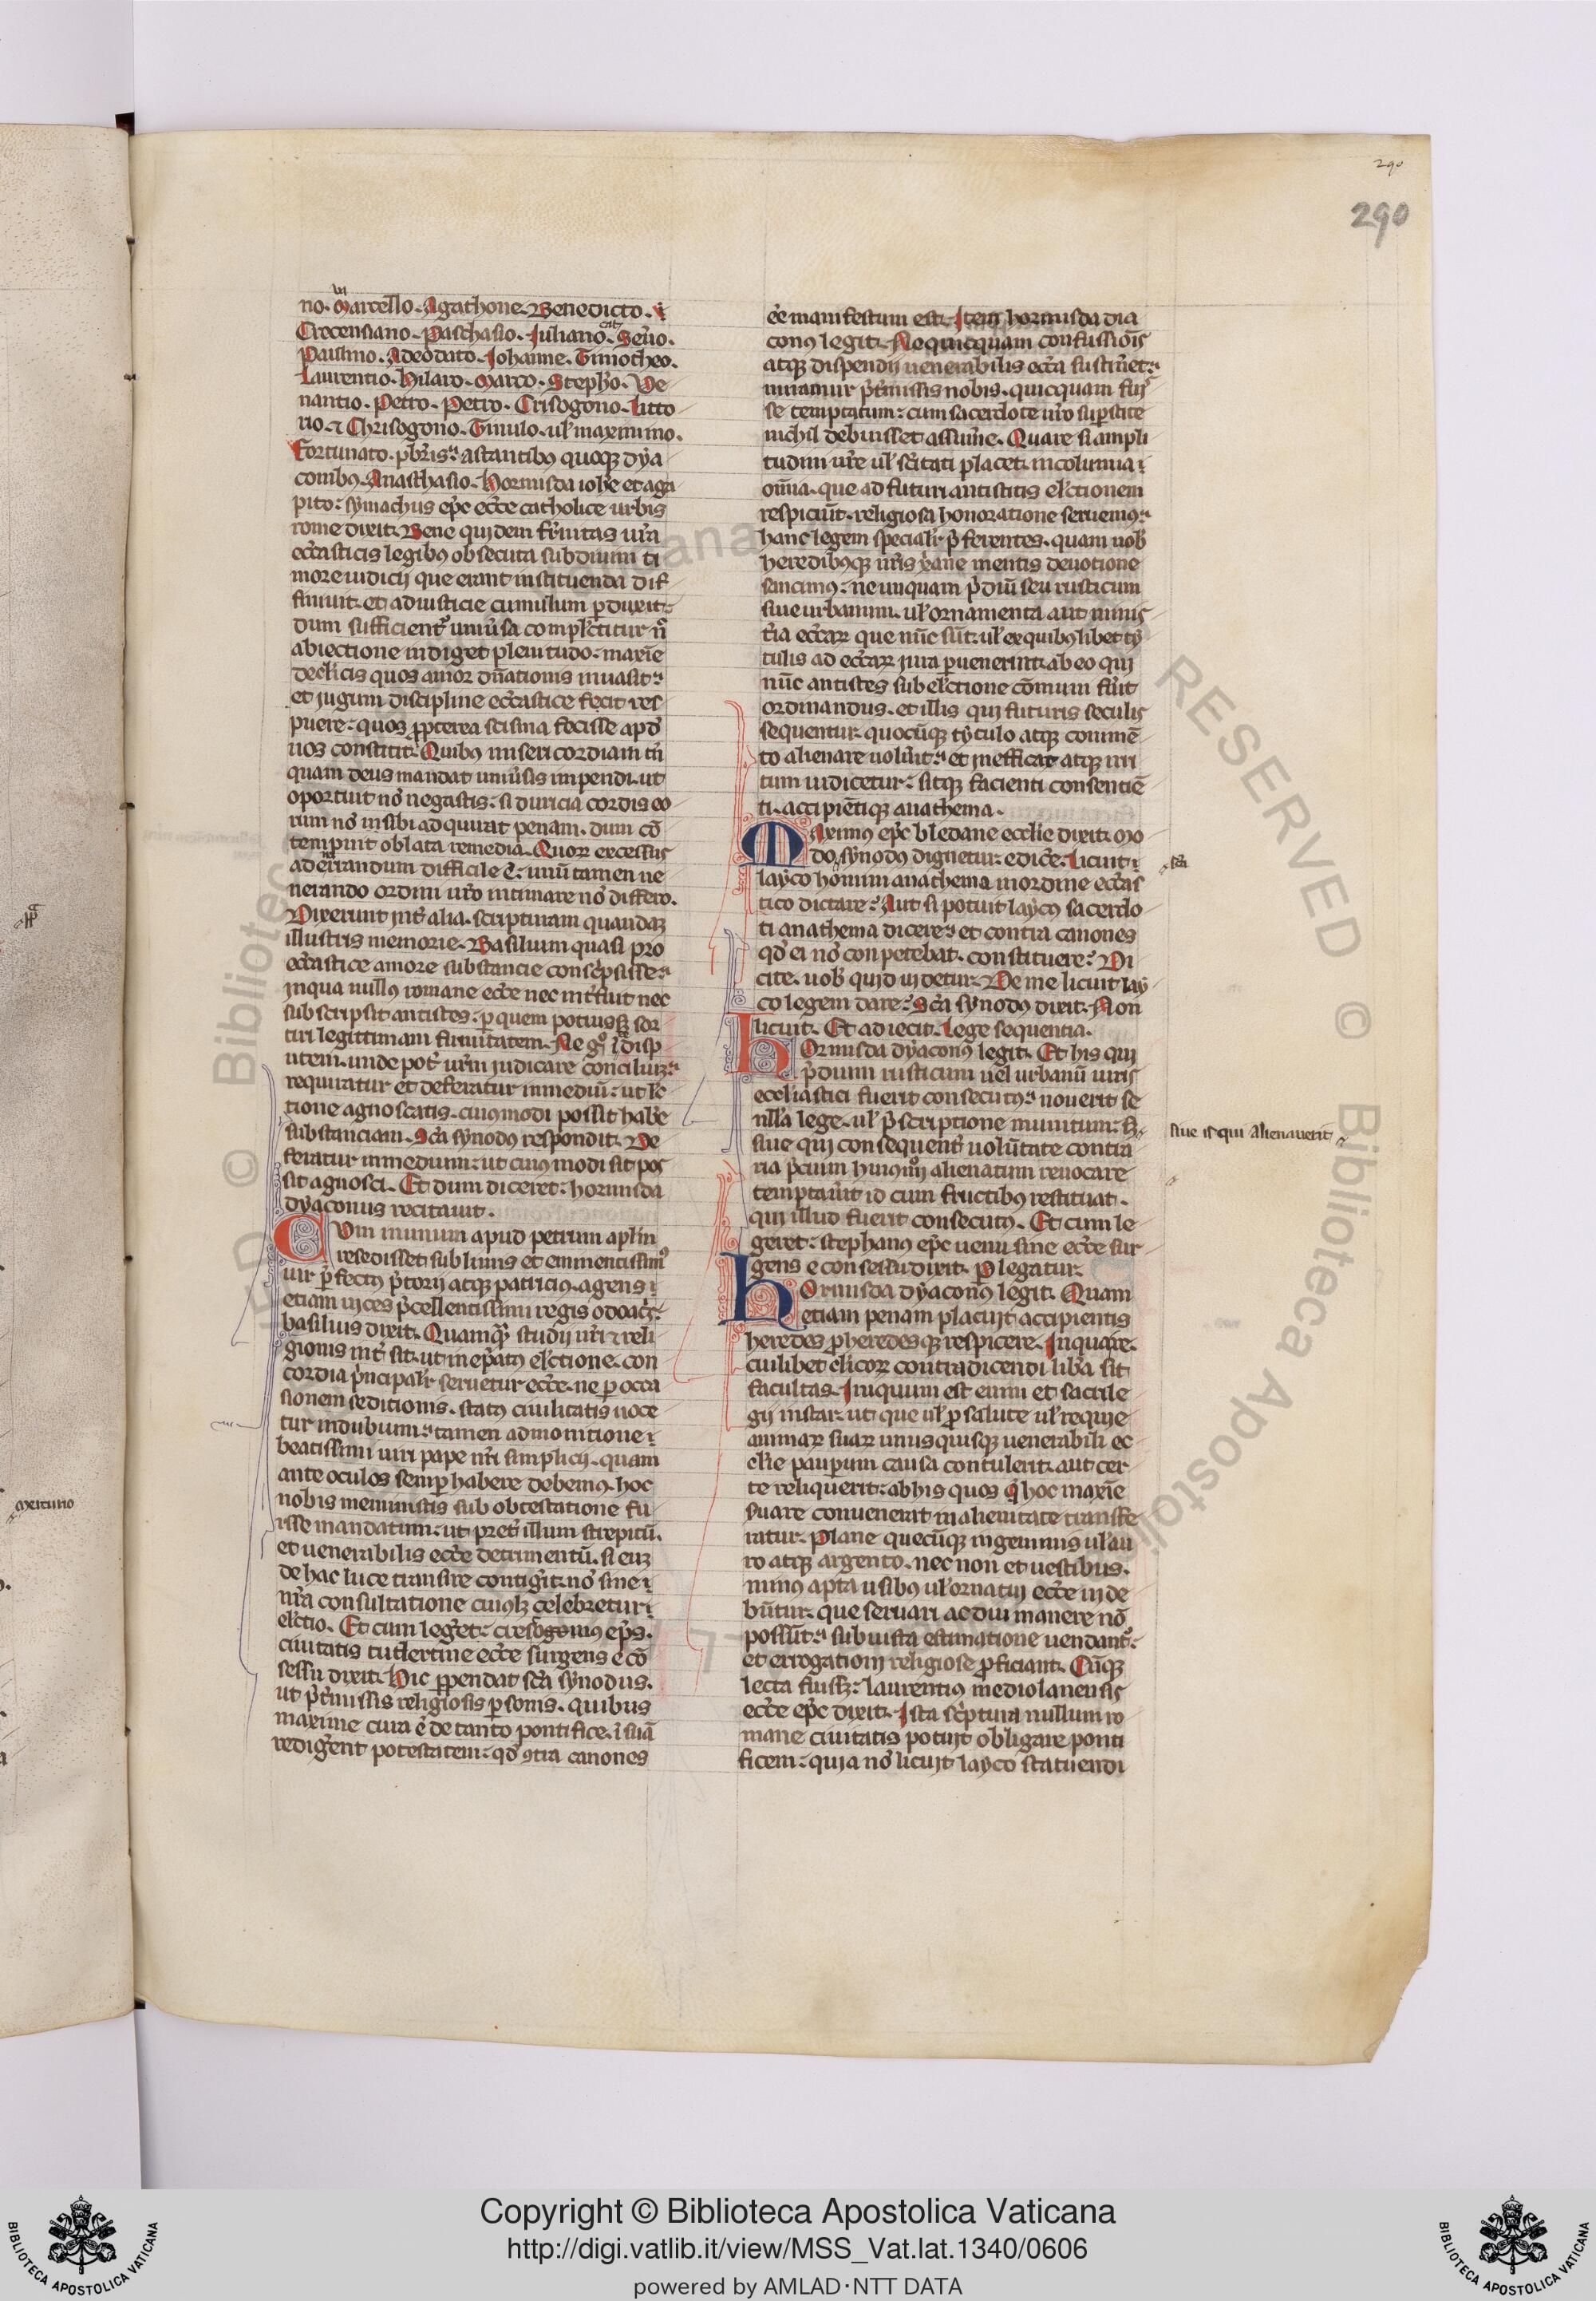 290
290
no. Marcello. Agathone. Benedicto.
Crecensiano. Paschasio. Juliano. Seṽo.
Paulino. Adeodato. Johanne. Timotheo.
Laurentio. Hilaro. Marco. Stepħo. Ve
nantio. Petro. Petro. Crisogono. Litto
rio. ⁊ Chrisogono. Timulo. ul' maximino.
Fortunato. pbr̃is. astantibꝰ quoqꝫ dya
conibꝰ. Anasthasio. Hormisda ioħe et aga
pito: symachus ep̃c ecc̃e catholice urbis
rome dixit. Bene quidem fr̃nitas ur̃a
ecc̃asticis legibꝰ obsecuta sub diuini ti
more iudicij que erant instituenda dif
finiuit. et ad iusticie cumulum ꝑduxit.
dum sufficient' uniũsa complectitur n̄
abiectione indiget plenitudo. maxĩe
de cl'icis quos amor dn̄ationis inuasit.
et jugum discipline ecc̃astice fecit res
puere: quos ꝓpterea scisma fecisse apd'
uos constitit. Quibꝰ misericordiam tñ
quam deus mandat uniũsis impendi. ut
oportuit no negastis: si duricia cordis eo
rum no insibi adquirat penam. dum cō
tempnit oblata remedia. Quoꝝ excessus
ad enarrandum difficile ē. unū tamen ue
nerando ordini ur̃o intimare no differo.
Dixerunt int' alia. scripturam quandaꝫ
illustris memorie. Basilium quasi pro
ecc̃astice amore substancie consc̃psisse.
in qua nullus romane ecc̃e nec int'fuit nec
subscripsit antistes: ꝑ quem potuisset sor
tiri legittimam firmitatem. Ne gͦ
utem. unde pot' ur̃m iudicare conciliuꝫ.
requiratur et deferatur in mediū: ut lc̃
tione agnoscatis. cuiusmodi possit hab̃e
substanciam. Sc̃a synodꝰ respondit. De
feratur in medium: ut cuiꝰmodi sit pos
sit agnosci. Et dum diceret: hormisda
dyaconus recitauit.
Cum in unum apud petrum apl'm
resedisset sublimis et eminentissimꝰ
uir p̃fectꝰ p̃torij atqꝫ patriciꝰ. agens
etiam uices p̃cellentissimi regis odoac̃.
basilius dixit. Quamqᵃ̃ studij nr̃i ⁊ reli
gionis int' sit. ut in ep̃atꝰ el'ctione. con
cordia p̃ncipalr̃ seruetur ecc̃e. ne ꝑ occa
sionem seditionis. statꝰ ciuilitatis uoce
tur in dubium: tamen admonitione
beatissimi uiri pape nr̃i simplicij. quam
ante oculos semꝑ habere debemꝰ. hoc
nobis meministis sub obtestatione fu
isse mandatum: ut pret' illum strepitū.
et uenerabilis ecc̃e detrimentū. si euꝫ
de hac luce transire contig̃it. no sine
nr̃a consultatione cuiuslꝫ celebretur
el'ctio. Et cum leg̃et: cresogonus ep̃s.
ciuitatis tudertine ecc̃e surgens e cō
sessu dixit. Hic ꝑpendat sc̃a synodus.
ut p̃t'missis religiosis ꝑsonis. quibus
maxime cura ē de tanto pontifice. ī suā
redig̃ent potestatem: qd' ɔtra canones
ẽe manifestum est. Item hormisda dia
conꝰ legit. Ne quicquam confusiōis
atqꝫ dispendij uenerabilis ecc̃a sustin̄et:
miramur p̃t'missis nobis. quicquam fuis
se temptatum: cum sacerdote nr̃o suꝑstite
nichil debuisset assum̃e. Quare si ampli
tudini ur̃e ul' sc̃itati placet. incolumia
om̄ia. que ad futuri antistitis el'ctionem
respiciūt. religiosa honoratione seruemꝰ:
hanc legem specialit̃ p̃ferentes. quam nob'
heredibꝰqꝫ nr̃is xp̃iane mentis deuotione
sancimꝰ: ne unquam p̃diū seu rusticum
siue urbanum. ul' ornamenta aut minis
t'ia ecc̃aꝝ que nūc sūt. ul' ex quibꝰlibet ty
tulis ad ecc̃aꝝ iura ꝑuenerint. ab eo qui
nūc antistes sub el'ctione cōmuni fũit
ordinandus. et illis qui futuris seculis
sequentur. quocūqꝫ tytulo atqꝫ commē
to alienare uolũit: et inefficax atqꝫ irri
tum iudicetur: sitqꝫ facienti consentiē
ti. accipiētiqꝫ anathema.
Maximꝰ ep̃c bledane eccl'ie dixit. Mo
do synodꝰ dignetur. edic̃e. Licuit
layco homini anathema in ordine ecc̃as
tico dictare? Aut si potuit laycꝰ sacerdo
ti anathema dicere? et contra canones
qd' ei no conpetebat. constituere? Di
cite. uob' quid uidetur. De me licuit lay
co legem dare? Sc̃a synodꝰ dixit. Non
licuit. Et adiecit. Lege sequentia.
Hormisda dyaconꝰ legit. Et his qui
p̃dium rusticum uel urbanū iuris
eccl'iastici fuerit consecutꝰ: nouerit se
nll'a lege. ul' p̃scriptione munitum: sꝫ
siue qui consequent' uolūtate contra
ria p̃dium huiꝰmōi alienatum reuocare
temptaũit id cum fructibꝰ restituat.
qui illud fuerit consecutꝰ. Et cum le
geret: stephanꝰ ep̃c uenusine ecc̃e sur
gens e consessu dixit. Perlegatur.
Hormisda dyaconꝰ legit. Quam
etiam penam placuit accipientis
heredes ꝓheredesqꝫ respicere. In qua re.
cuilibet cl'icoꝝ contradicendi lib̃a sit
facultas. Iniquum est enim et sacrile
gij instar. ut que ul' ꝓ salute ul' requie
animaꝝ suaꝝ unusquisqꝫ uenerabili ec
cl'ie pauꝑum causa contulerit. aut cer
te reliquerit: ab his quos q̃ hoc maxĩe
suare conuenerat in alienitate transfe
ratur. Plane quecūqꝫ in gemmis ul' au
ro atqꝫ argento. nec non et uestibus.
minꝰ apta usibꝰ ul' ornatui ecc̃e uide
būtur. que seruari ac diu manere nō
possūt: sub iusta estimatione uendantꝰ:
et errogationi religiose ꝓficiant. Cūqꝫ
lecta fuissꝫ: laurentiꝰ mediolanensis
ecc̃e ep̃c dixit. Ista sc̃ptura nullum ro
mane ciuitatis potuit obligare ponti
ficem: quia no licuit layco statuendi
siue is qui alienauerit